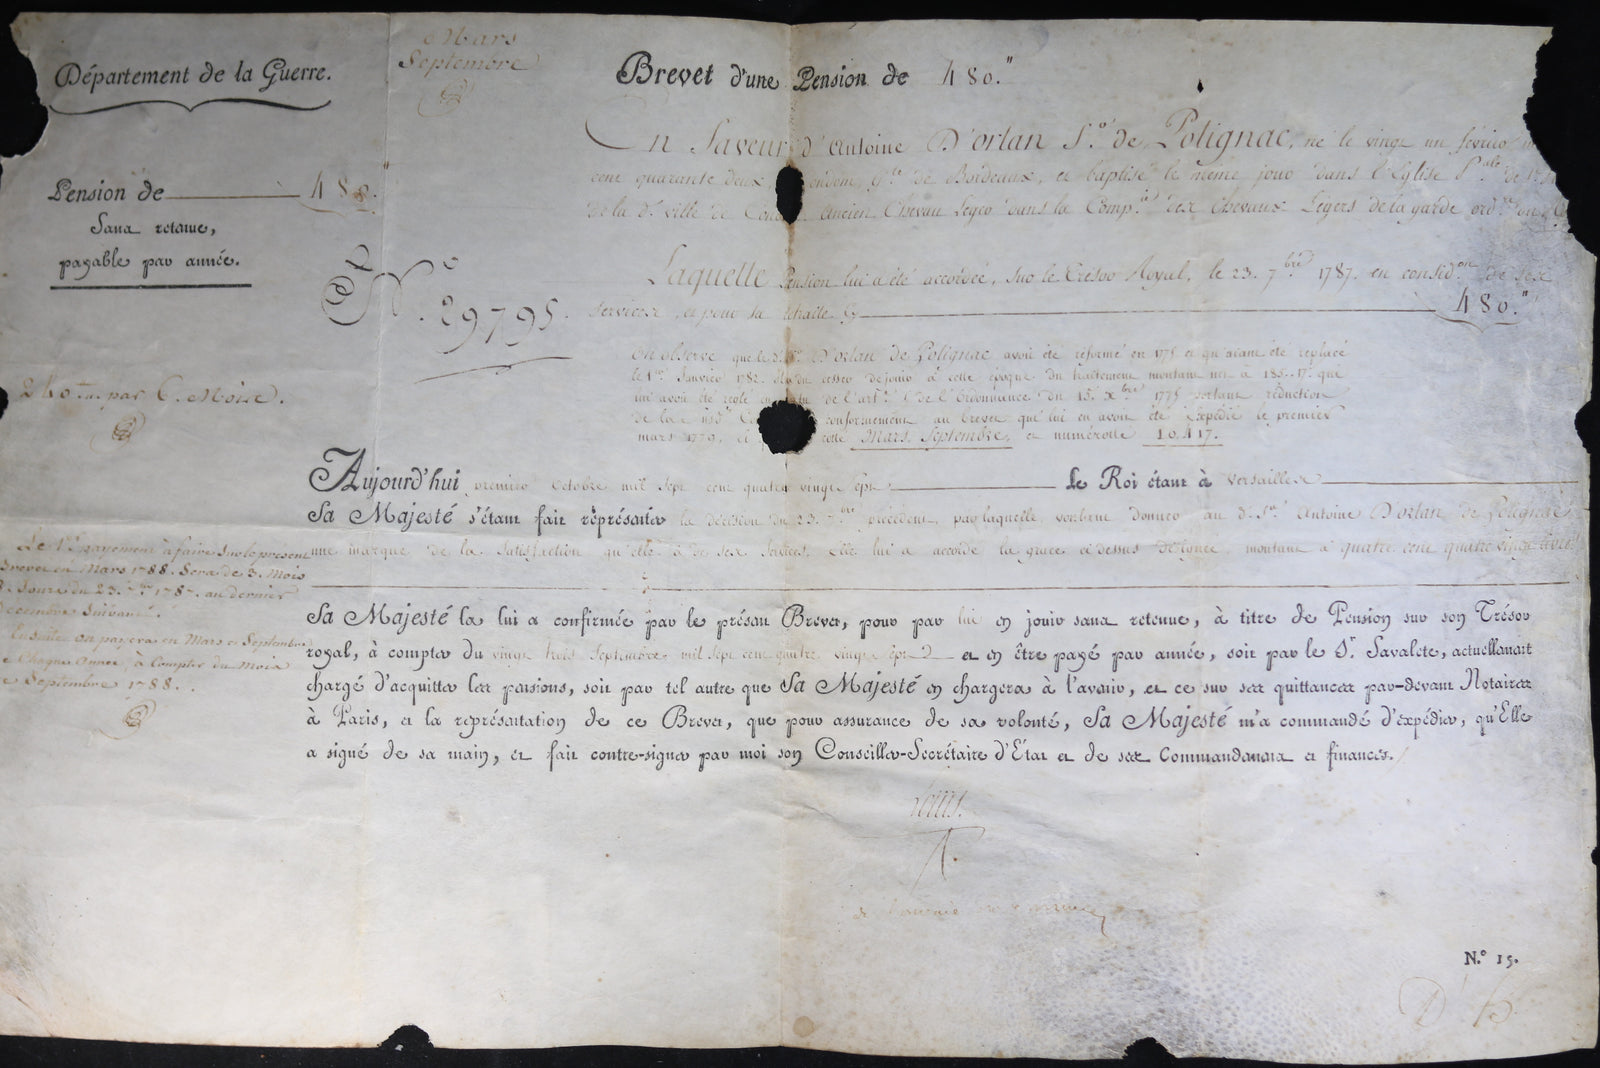 Département de la Guerre.
Mars
Septembre
Pension de 480."
Sans retenue,
payable par année.
N.° 29795.
240 # par 6. Mois.
Le 1.er payement à faire sur le présent
Brevet en Mars 1788. Sera de 3. Mois
8. Jours du 23. 7.bre 1787. au dernier
Decembre Suivant.
Ensuite on payera en Mars et Septembre
de Chaque Année, à Compter du Mois
de Septembre 1788.
Brevet d'une Pension de 480."
En Faveur d'Antoine D'orlan S.r de Polignac, né le vingt un février
cent quarante deux à Condom, g.té de Bordeaux, et baptisé le même jour dans l'Eglise P.ale de
de la d.e ville de Condom Ancien Chevau Leger dans la Comp.ie des Chevaux Légers de la garde ord.re du
Laquelle Pension lui a été accordée, sur le Trésor Royal, le 23. 7.bre 1787. en consid.on de ses
services, et pour sa retraite Cy 480."
On observe que le d. S.r D'orlan de Polignac avoit été réformé en 1775 et qu'ayant été replacé
le 1.er Janvier 1782. il a du cesser de jouir à cette époque du traitement montant net à 183..17. qui
lui avoit été réglé en vertu de l'art. de l'Ordonnance du 15. X.bre 1775 portant réduction
de la susd.e Comp.ie conformément au brevet qui lui en avoit été Expédié le premier
mars 1779, cotté Mars, Septembre, et numérotté 10,417.
Aujourd'hui premier Octobre mil sept cent quatre vingt sept le Roi étant à Versailles
Sa Majesté s'étant fait représenter la décision du 23. 7.bre précédent, par laquelle, voulant donner au d. S.r Antoine D'orlan de Polignac
une marque de la satisfaction qu'elle a de ses services, Elle lui a accordé la grace ci dessus désignée, montant à quatre cent quatre vingt livres
Sa Majesté la lui a confirmée par le présent Brevet, pour par lui en jouir sans retenue, à titre de Pension sur son Trésor
royal, à compter du vingt trois Septembre mil sept cent quatre vingt sept et en être payé par année, soit par le S.r Savalete, actuellement
chargé d'acquitter les pensions, soit par tel autre que Sa Majesté en chargera à l'avenir, et ce sur ses quittances par-devant Notaires
à Paris, et la représentation de ce Brevet, que pour assurance de sa volonté, Sa Majesté m'a commandé d'expédier, qu'Elle
a signé de sa main, et fait contre-signer par moi son Conseiller-Secrétaire d'État et de ses Commandemens et finances.
Louis.
N.° 15.